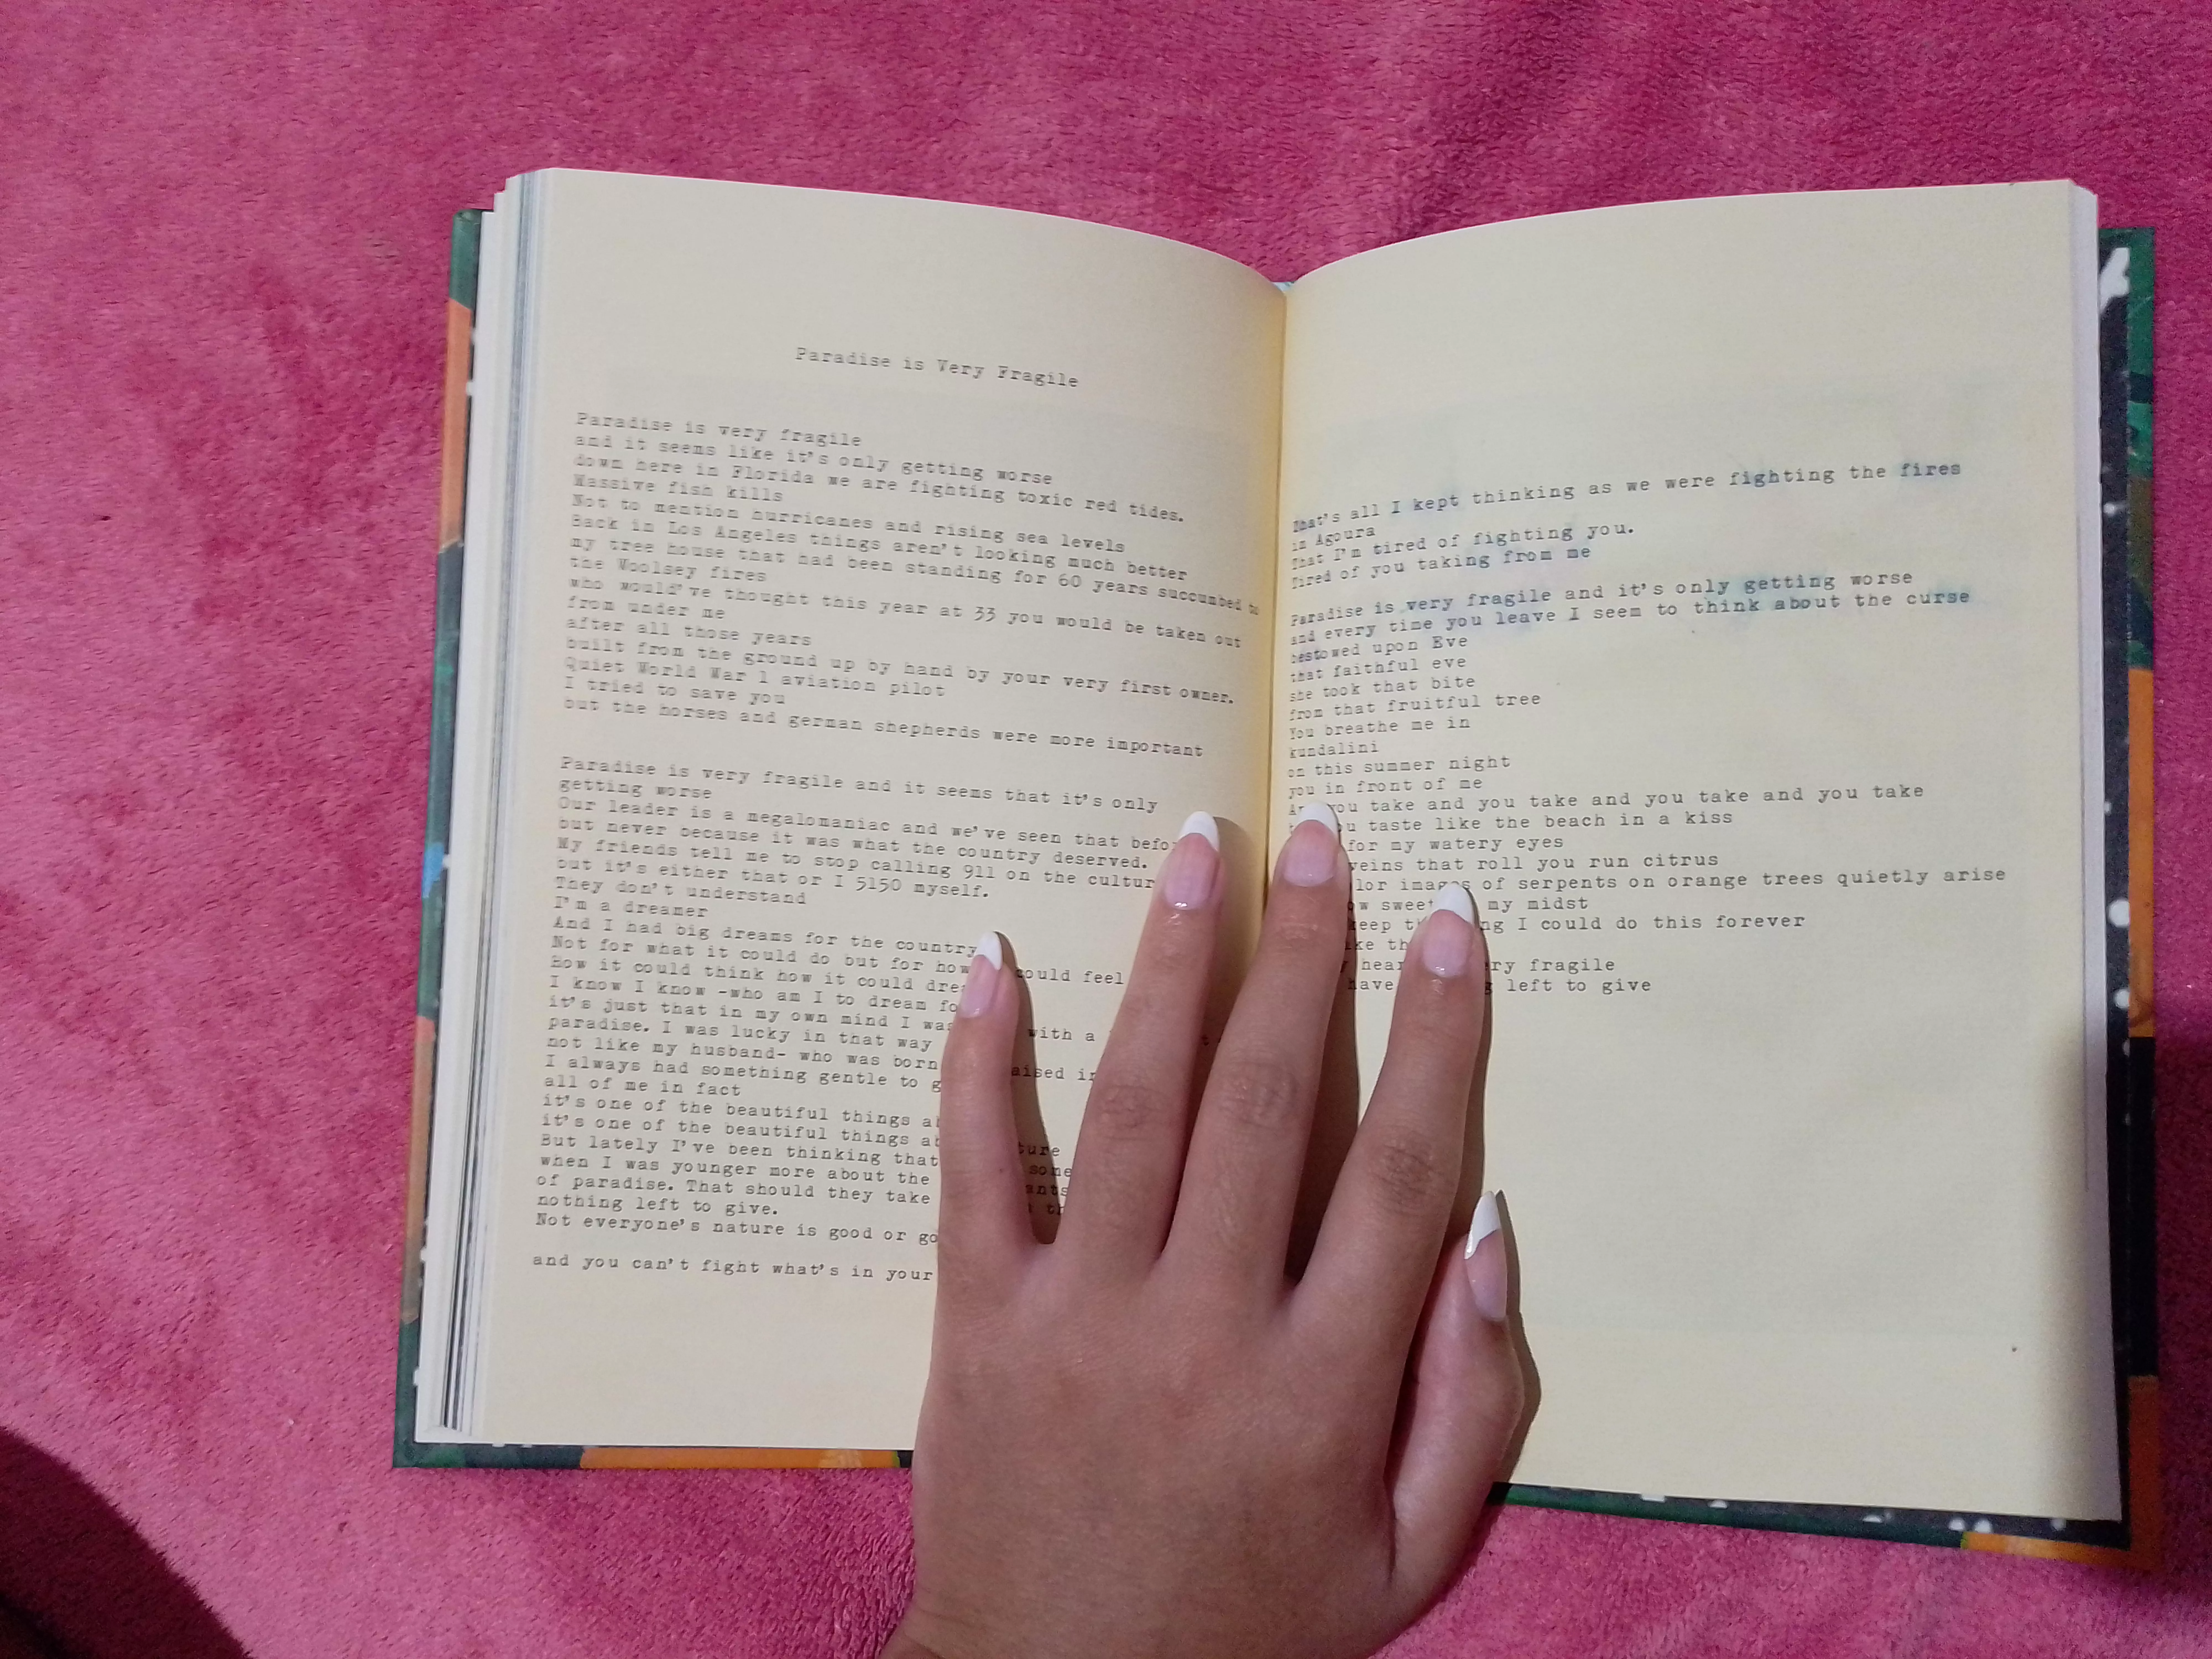 Paradise is Very Fragile
Paradise is very fragile
and it seems like it's only getting worse
down here in Florida we are fighting toxic red tides.
Massive fish kills
Not to mention hurricanes and rising sea levels
Back in Los Angeles things aren't looking much better
my tree house that had been standing for 60 years succumbed to
the Woolsey fires
who would've thought this year at 33 you would be taken out
from under me
after all those years
built from the ground up by hand by your very first owner.
Quiet World War 1 aviation pilot
I tried to save you
but the horses and german shepherds were more important
Paradise is very fragile and it seems that it's only
getting worse
Our leader is a megalomaniac and we've seen that
but never because it was what the country deserved.
My friends tell me to stop calling 911 on the
but it's either that or I 5150 myself.
They don't understand
I'm a dreamer
And I had big dreams for the country
Not for what it could do but for how could feel
How it could think how it could
I know I know -who am I to dream
it's just that in my own mind I was with a
paradise. I was lucky in that way
not like my husband- who was born
I always had something gentle to
all of me in fact
it's one of the beautiful things
it's one of the beautiful things
But lately I've been thinking that
when I was younger more about the
of paradise. That should they take
nothing left to give.
Not everyone's nature is good or
and you can't fight what's in your
That's all I kept thinking as we were fighting the fires
in Agoura
That I'm tired of fighting you.
Tired of you taking from me
Paradise is very fragile and it's only getting worse
and every time you leave I seem to think about the curse
bestowed upon Eve
that faithful eve
she took that bite
from that fruitful tree
You breathe me in
kundalini
on this summer night
you in front of me
you take and you take and you take and you take
taste like the beach in a kiss
for my watery eyes
veins that roll you run citrus
images of serpents on orange trees quietly arise
my midst
keep I could do this forever
fragile
have left to give